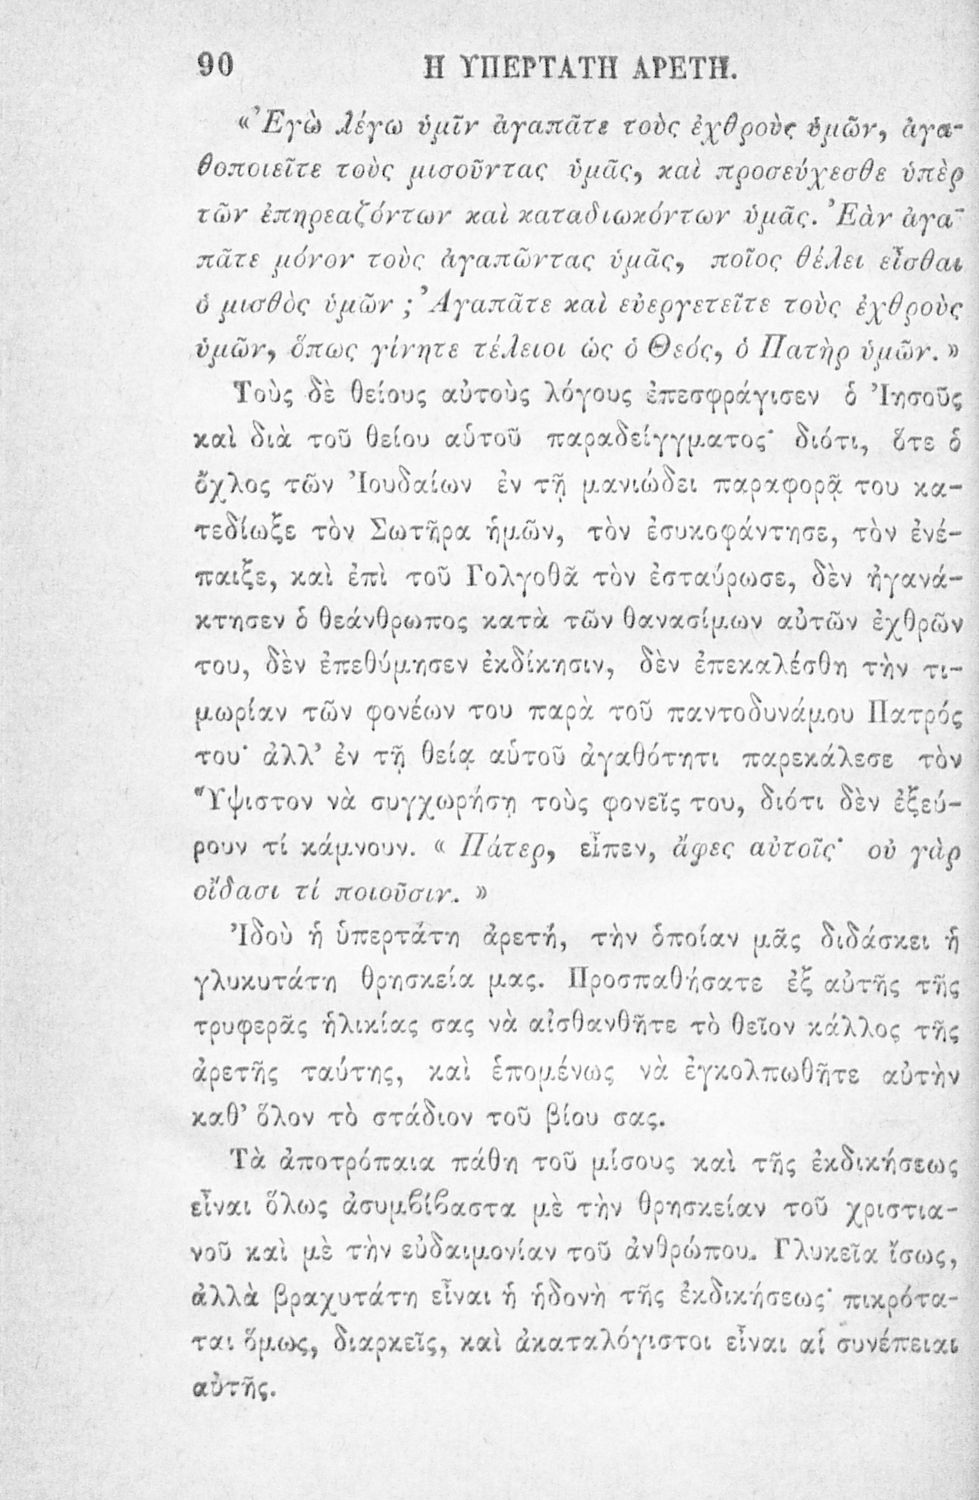 90 Η ΥΠΕΡΤΑΤΗ ΑΡΕΤΗ.
«Ἐγὼ λέγω ὑμῖν ἀγαπᾶτε τοὺς ἐχθροὺς ὑμῶν, ἀγα-
θοποιεῖτε τοὺς μισοῦντας ὑμᾶς, καὶ προσεύχεσθε ὑπὲρ
τῶν ἐπηρεαζόντων καὶ καταδιωκόντων ὑμᾶς. Ἐὰν ἀγα-
πᾶτε μόνον τοὺς ἀγαπῶντας ὑμᾶς, ποῖος θέλει εἶσθαι
ὁ μισθὸς ὑμῶν ; Ἀγαπᾶτε καὶ εὐεργετεῖτε τοὺς ἐχθροὺς
ὑμῶν, ὅπως γίνητε τέλειοι ὡς ὁ Θεός, ὁ Πατὴρ ὑμῶν. »
Τοὺς δὲ θείους αὐτοὺς λόγους ἐπεσφράγισεν ὁ Ἰησοῦς
καὶ διὰ τοῦ θείου αὑτοῦ παραδείγγματος· διότι, ὅτε ὁ
ὄχλος τῶν Ἰουδαίων ἐν τῇ μανιώδει παραφορᾷ του κα-
τεδίωξε τὸν Σωτῆρα ἡμῶν, τὸν ἐσυκοφάντησε, τὸν ἐνέ-
παιξε, καὶ ἐπὶ τοῦ Γολγοθᾶ τὸν ἐσταύρωσε, δὲν ἠγανά-
κτησεν ὁ θεάνθρωπος κατὰ τῶν θανασίμων αὐτῶν ἐχθρῶν
του, δὲν ἐπεθύμησεν ἐκδίκησιν, δὲν ἐπεκαλέσθη τὴν τι-
μωρίαν τῶν φονέων του παρὰ τοῦ παντοδυνάμου Πατρός
του· ἀλλ’ ἐν τῇ θείᾳ αὑτοῦ ἀγαθότητι παρεκάλεσε τὸν
Ὕψιστον νὰ συγχωρήσῃ τοὺς φονεῖς του, διότι δὲν ἐξεύ-
ρουν τί κάμνουν. « Πάτερ, εἶπεν, ἄφες αὐτοῖς· οὐ γὰρ
οἴδασι τί ποιοῦσιν. »
Ἰδοὺ ἡ ὑπερτάτη ἀρετή, τὴν ὁποίαν μᾶς διδάσκει ἡ
γλυκυτάτη θρησκεία μας. Προσπαθήσατε ἐξ αὐτῆς τῆς
τρυφερᾶς ἡλικίας σας νὰ αἰσθανθῆτε τὸ θεῖον κάλλος τῆς
ἀρετῆς ταύτης, καὶ ἑπομένως νὰ ἐγκολπωθῆτε αὐτὴν
καθ’ ὅλον τὸ στάδιον τοῦ βίου σας.
Τὰ ἀποτρόπαια πάθη τοῦ μίσους καὶ τῆς ἐκδικήσεως
εἶναι ὅλως ἀσυμβίβαστα μὲ τὴν θρησκείαν τοῦ χριστια-
νοῦ καὶ μὲ τὴν εὐδαιμονίαν τοῦ ἀνθρώπου. Γλυκεῖα ἴσως,
ἀλλὰ βραχυτάτη εἶναι ἡ ἡδονὴ τῆς ἐκδικήσεως· πικρότα-
ται ὅμως, διαρκεῖς, καὶ ἀκαταλόγιστοι εἶναι αἱ συνέπειαι
αὐτῆς.